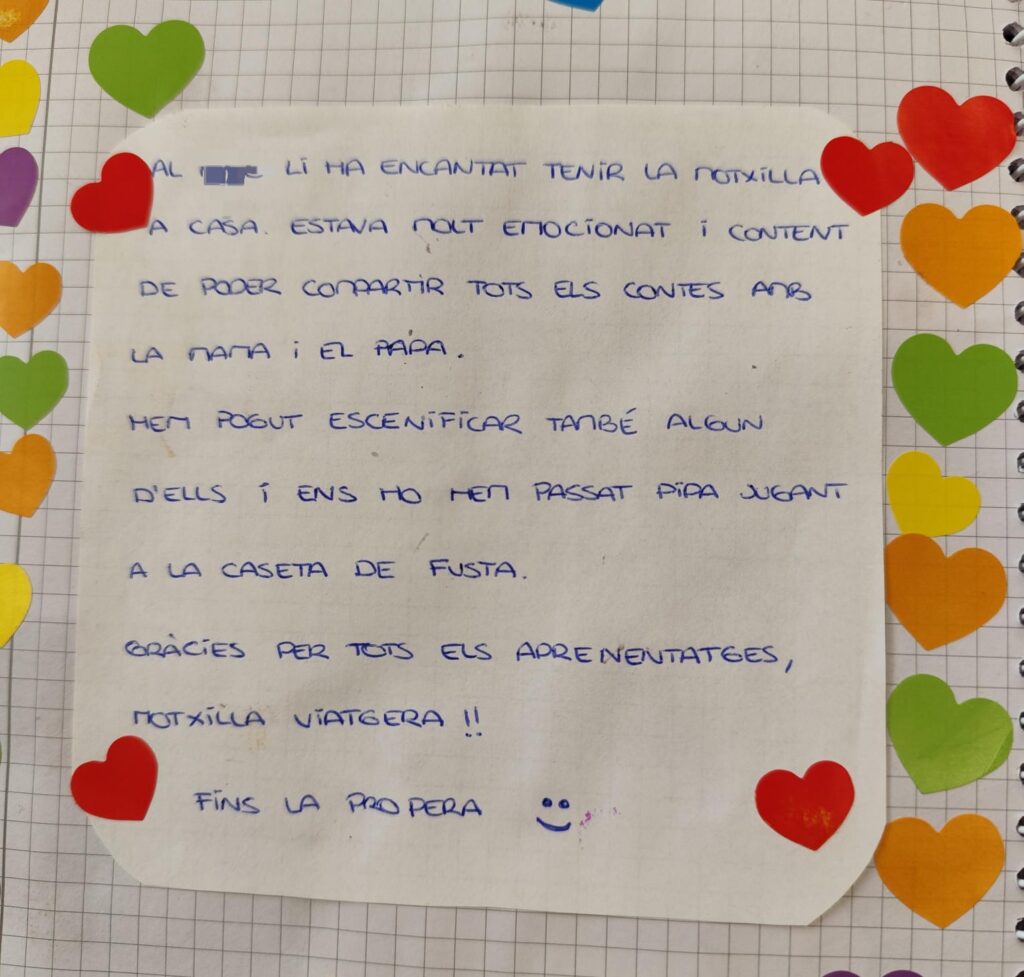 AL LI HA ENCANTAT TENIR LA MOTXILLA
A CASA. ESTAVA MOLT EMOCIONAT I CONTENT
DE PODER COMPARTIR TOTS ELS CONTES AMB
LA MAMA I EL PAPA.
HEM POGUT ESCENIFICAR TAMBÉ ALGUN
D'ELLS I ENS HO HEM PASSAT PIPA JUGANT
A LA CASETA DE FUSTA.
GRÀCIES PER TOTS ELS APRENENTATGES,
MOTXILLA VIATGERA !!
FINS LA PROPERA